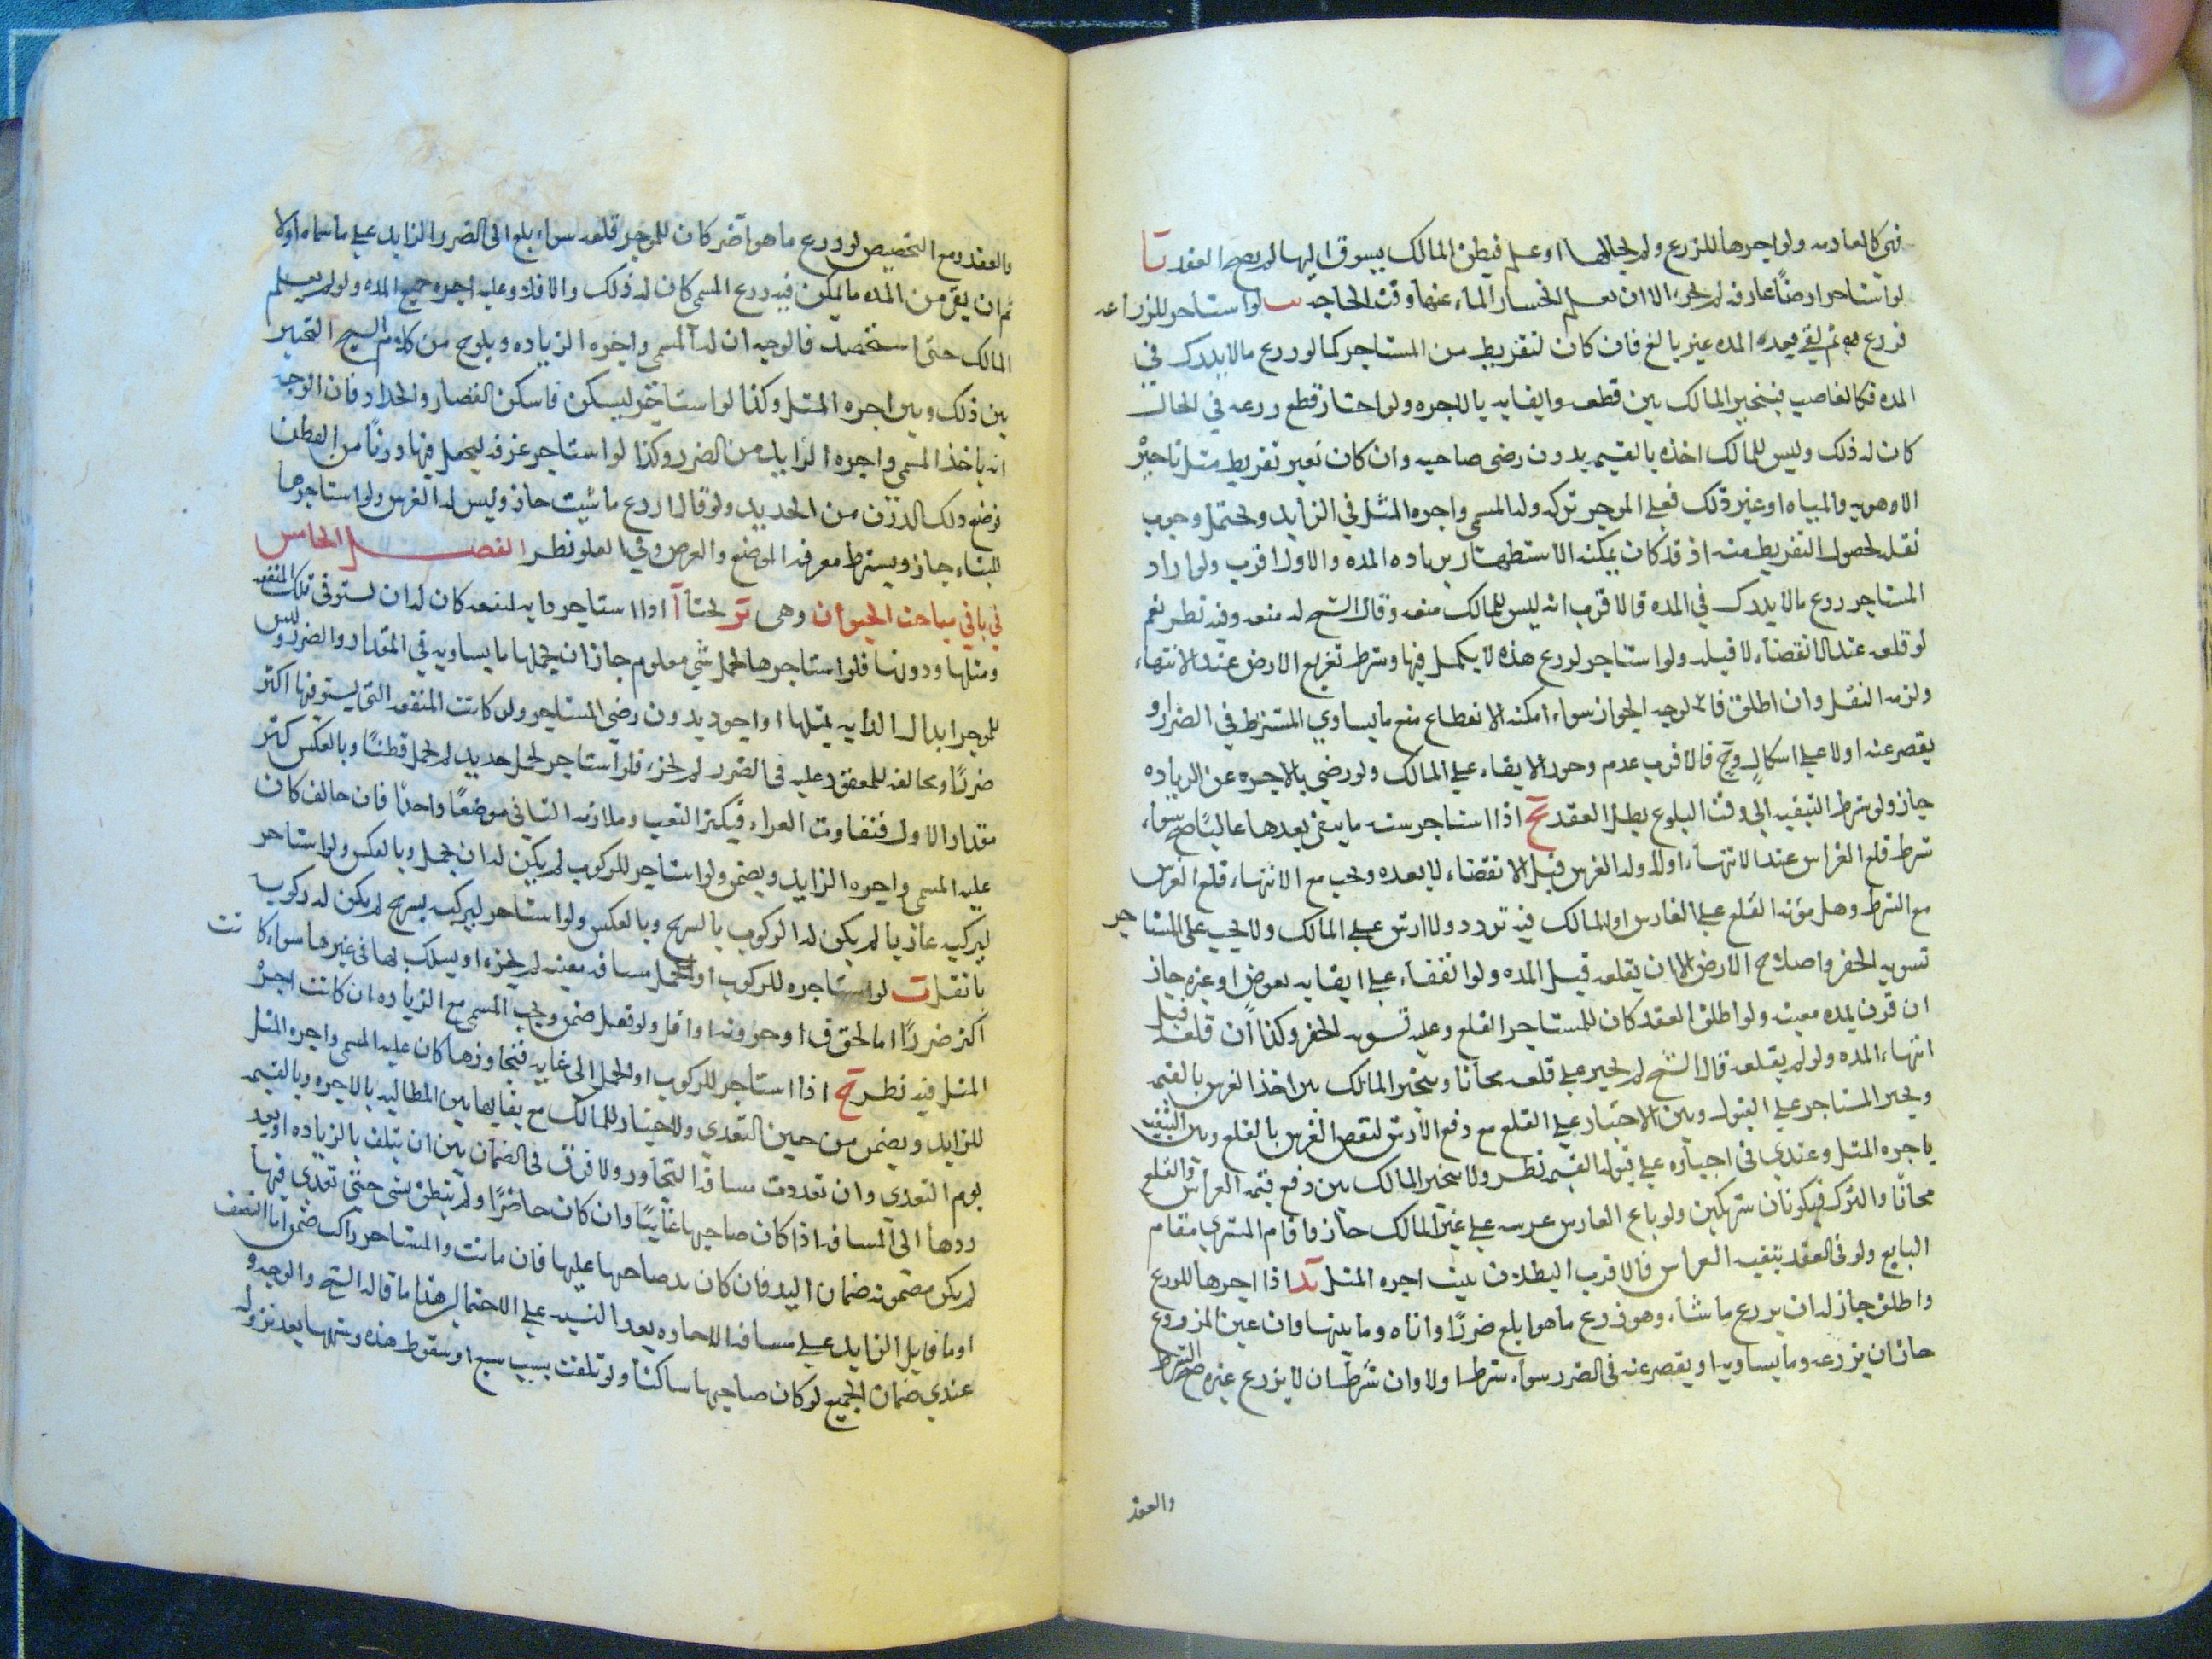 فهي كالعاديه ولو اجرها للزرع ولم لحالها او علم فيظن المالك يسوق اليها لم يصح العقد يا
لو استاجر ارضًا غارقه لم يجز الا ان يعلم انحسار الماء عنها وقت الحاجه يب لو استاجر للزراعه
فزرع ثم بقي بعد المده غير بالغ فان كان لتفريط من المستاجر كما لو زرع ما لا يدرك في
المده فكالغاصب فيتخير المالك بين قطعه وابقايه بالاجره ولو اختار قطع زرعه في الحال
كان له ذلك وليس للمالك اخذه بالقيمه بدون رضى صاحبه وان كان بغير تفريط مثل تاخير
الاهويه والمياه او غير ذلك فعلى الموجر تركه وله المسمى واجره المثل في الزايد ويحتمل وجوب
نقله لحصول التفريط منه اذ قد كان يمكنه الاستظهار بزياده المده والاول اقرب ولو اراد
المستاجر زرع ما لا يدرك في المده فالاقرب انه ليس للمالك منعه وقال الشيخ له منعه وفيه نظر نعم
لو قلعه عند الانقضاء لا قبله ولو استاجر لزرع هذه لا يكمل فيها وشرط تفريغ الارض عند الانتهاء
ولزمه النقل وان اطلق فالوجه الجواز سواء امكنه الانتفاع مع ما يساوي المشترط في الضرر او
يقصر عنه او لا على اشكال فالاقرب عدم وجوب الابقاء على المالك ولو رضي بالاجره عن الزياده
جاز ولو شرط التبقيه الى وقت البلوغ بطل العقد يج اذا استاجر سنه ما يبقى بعدها غالبًا صح سواء
شرط قلع الغراس عند الانتهاء او لا وله الغرس قبل الانقضاء لا بعده ويجب مع الانتهاء قلع الغرس
مع الشرط وهل مؤنه القلع على الغارس او المالك فيه تردد ولا ارش على المالك ولا يجب على المستاجر
تسويه الحفر واصلاح الارض الا ان يقلعه قبل المده ولو اتفقا على ابقايه بعوض او غيره جاز
ان قرن بمده معينه ولو اطلق العقد كان للمستاجر القلع وعليه تسويه الحفر وكذا ان قلعه قبل
انتهاء المده ولو لم يقلعه قال الشيخ لم يجبر على قلعه مجانًا ويتخير المالك بين اخذ الغرس بالقيمه
ويجبر المستاجر على القبول وبين الاجبار على القلع مع دفع الارش لنقص الغرس بالقلع وبين التبقيه
باجره المثل وعندي في اجباره على قبول القيمه نظر ولا يتخير المالك بين دفع قيمه الغراس والقلع
مجانًا والترك فيكونان شريكين ولو باع الغارس غرسه على غير المالك جاز واقام المشتري مقام
البايع ولو في العقد بتبقيه الغراس فالاقرب البطلان يثبت اجره المثل يد اذا اجرها للزرع
واطلق جاز له ان يزرع ما شاء وهو زرع ما هو ابلغ ضررًا وادناه وما بينهما وان عين المزروع
جاز ان يزرعه وما يساويه او يقصر عنه في الضرر سواء شرطا او لا وان شرطا ان لا يزرع غيره صح الشرط
والعقد
والعقد ومع التخصيص لو زرع ما هو اضر كان للموجر قلعه سواء بلغ الى الضرر الزايد على ما سماه او لا
ثم ان بقي من المده ما يمكن فيه زرع المسمى كان له ذلك والا فلا وعليه اجره جميع المده ولو لم يعلم
المالك حتى استحصد فالوجه ان له المسمى واجره الزياده ويلوح من كلام الشيخ التخيير
بين ذلك وبين اجره المثل وكذا لو استاجر ليسكن فاسكن القصار والحداد فان الوجه
انه ياخذ المسمى واجره الزايد من الضرر وكذا لو استاجر غرفه ليجعل فيها وزنًا من القطن
فوضع ذلك الوزن من الحديد ولو قال ازرع ما شيت جاز وليس له الغرس ولو استاجرها
للبناء جاز ويشترط معرفه الموضع والعرض وفي العلو نظر الفصل الخامس
في باقي مباحث الحيوان وهي بحثًا ا اذا استاجر دابه لمنفعه كان له ان يستوفي تلك المنفعه
ومثلها ودونها فلو استاجرها لحمل شي معلوم جاز ان يحملها ما يساويه في المقدار والضرر وليس
للموجر ابدال الدابه بمثلها او اجود بدون رضى المستاجر ولو كانت المنفعه التي يستوفيها اكثر
ضررًا ومخالفه للمعقود عليه في الضرر لم يجز فلو استاجر لحمل حديد لم يحمل قطنًا وبالعكس لكثر
مقدار الاول فتفاوت الهواء فيكثر التعب وملازمه الثاني موضعًا واحدًا فان خالف كان
عليه المسمى واجره الزايد ويضمن ولو استاجر للركوب لم يكن له ان يحمل وبالعكس ولو استاجر
ليركبه عاريا لم يكن له الركوب بالسرج وبالعكس ولو استاجر ليركبه بسرج لم يكن له ركوب
باثقل ب لو استاجره للركوب او الحمل مسافه معينه لم يجزه او يسلك لها في غيرها سواء كانت
اكثر ضررًا اما لخوف او حزونه او اقل ولو فعل ضمن ويجب المسمى مع الزياده ان كانت اجره
المثل فيه نظر ج اذا استاجر للركوب او الحمل الى غايه فتجاوزها كان عليه المسمى واجره المثل
للزايد ويضمن من حين التعدي والاختيار للمالك مع بقايها بين المطالبه بالاجره وبالقيمه
يوم التعدي وان تعددت مسافه التجاوز ولا فرق في الضمان بين ان يتلف بالزياده او بعد
ردها الى المسافه اذا كان صاحبها غايبًا وان كان حاضرًا ولم ينطق بشي حتى تعدي فيها
لم يكن مضمونه ضمان اليد فان كان يد صاحبها عليها فان ماتت والمستاجر راكب ضمن اما النصف
او ما قابل الزايد على مسافه الاجاره بعد النسبه على الاحتمال هذا ما قاله الشيخ والوجه و
عندي ضمان الجميع لو كان صاحبها ساكتًا ولو تلفت بسبب سبع او سقوط هذه وشبهها بعد نزوله